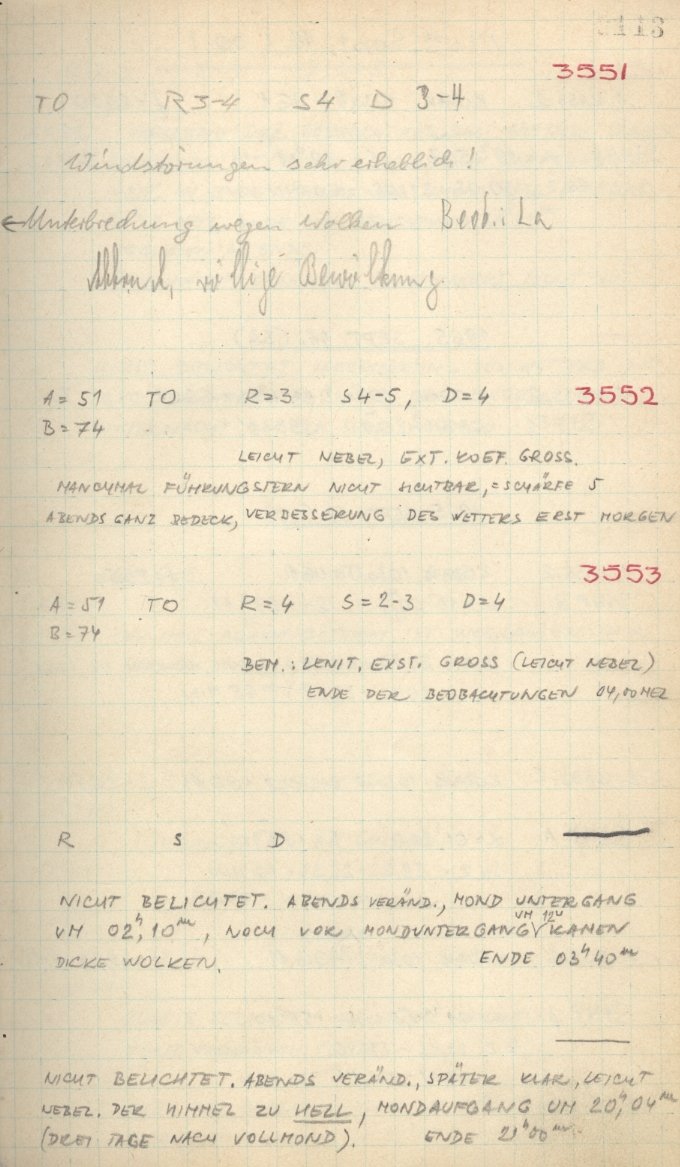 3551
TO R3-4 S4 D 3-4
Windstörungen sehr erheblich!
←Unterbrechung wegen Wolken Beob.: La
Abbruch, völlige Bewölkung.
A=51 TO R=3 S4-5, D=4 3552
B=74
LEICHT NEBEL, EXT. KOEF. GROSS.
MANCHMAL FÜHRUNGSTERN NICHT SICHTBAR, = SCHÄRFE 5
ABENDS GANZ BEDECK, VERBESSERUNG DES WETTERS ERST MORGEN
3553
A=51 TO R=4 S=2-3 D=4
B=74
BEM.: ZENIT. EXST. GROSS (LEICHT NEBEL)
ENDE DER BEOBACHTUNGEN 04,00 MEZ
R S D
NICHT BELICHTET. ABENDS VERÄND., MOND UNTERGANG
UM 02h,10m, NOCH VOR MONDUNTERGANG UM 12U KAMEN
DICKE WOLKEN. ENDE 03h40m
NICHT BELICHTET. ABENDS VERÄND., SPÄTER KLAR, LEICHT
NEBEL. DER HIMMEL ZU HELL, MONDAUFGANG UM 20h,04m
(DREI TAGE NACH VOLLMOND). ENDE 21h00m